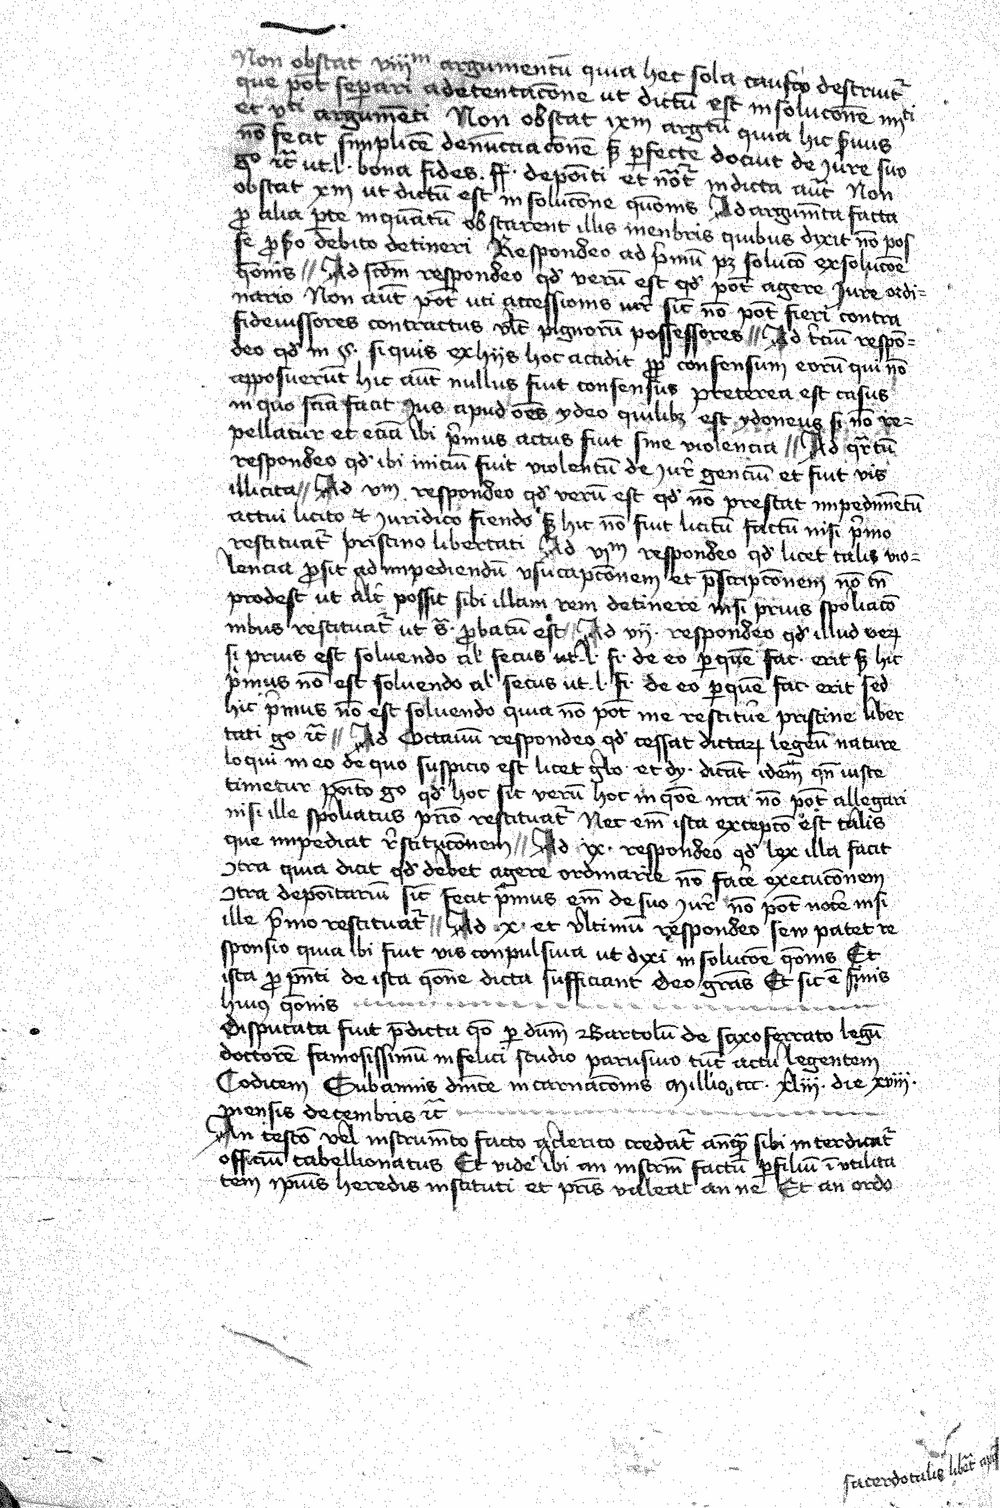 Non obstat viiiᵐ argumentū quia hec sola causā destruit᷑
que pōt separari a detentacōne ut dictū est in solucōne iiiiᵗⁱ
et vᵗⁱ argumēti Non obstat ixm argtū quia hic prius
nō fecit simplicē denūcciacōnē sꝫ perfecte docuit de jure suo
go ic̄ ut.l. bona fides. ff. depoiti et nōt᷑ in dicta aut̄ Non
obstat xm ut dictū est in solucōne quonis Ad argumēta facta
ꝓ alia pte inquātū obstarent illis menbris quibus dixit nō pos
se ꝓ pō debito detineri Respondeo ad pimū pꝫ solucō ex solucōe
qōnis // Ad scdm respondeo qd' verū est qd' pōt agere jure ordi=
nario Non aut̄ pōt uti accessionis iur̄ sic nō pōt fieri contra
fideiussores contractus vl̄ pignorū possessores // Ad tciū respō=
deo qd' in §. si quis ex hijs hoc accidit ꝓp consensum eorū qui nō
apposuerūt hic aut̄ nullus fuit consensus preterea est casus
in quo sciā facit jus apud oēs ydeo quilibꝫ est ydoneus si nō re=
pellatur et eciā ibi pimus actus fuit sine violencia // Ad qrtū
respondeo qd' ibi iniciū fuit violentū de jur̄ genciū et fuit vis
illicita // Ad vm respondeo qd' verū est qd' nō prestat impedimētū
actui licito et juridico fiendo sꝫ hic nō fuit licitū factū nisi pimo
restituat᷑ pristino libertati Ad vjᵐ respondeo qd' licet talis vio=
lencia prosit ad impediendū vsucapcōnem et pscripcōnem nō tn̄
prodest ut alr̄ possit sibi illam rem detinere nisi prius spoliacō
nibus restituat᷑ ut s̄. probatū est // Ad vij. respondeo qd' illud veꝝ
si prius est soluendo al' secus ut.l. fi. de eo per quē fac. erit sꝫ hic
pimus nō est soluendo al' secus ut.l. fi. de eo per quē fac. erit sed
hic pimus nō est soluendo quia nō pōt me restituēr pristine liber
tati go ic̄ // Ad Octauū respondeo qd' cessat dictaꝝ legeū nature
loqui in eo de quo suspicio est licet glo. et dy. dicāt idem qn̄ iuste
timetur poīto go qd' hoc sit verū hoc in qōe nra nō pōt allegari
nisi ille spoliatus prio restituat᷑ Nec em̄ ista excepcō est talis
que impediat r̄stitucōnem // Ad ix. respondeo qd' lex illa facit
ɔtra quia dicit qd' debet agere ordinarie nō face execucōnem
ɔtra depoitariū sic fecit pimus em̄ de suo jur̄ nō pōt noce nisi
ille pimo restituat᷑ // Ad x. et vltimū respondeo seu patet re
sponsio quia ibi fuit vis conpulsiua ut dixi in solucōe qōnis Et
ista ꝓ pnti de ista qōne dicta sufficiant deo gras Et sic ē finis
huiꝰ qōnis
Disputata fuit pdicta qō per dum Bartolū de saxoferrato legū
doctorē famosissimū in felici studio parusino tūc actu legentem
Codicem Sub annis dnice incarnacōnis Millio ccc. xliii. die xviii.
mensis decembris ic̄
An testō vel instrumēto facto a clerico credat᷑ anqᷓ sibi interdicat᷑
officiū tabellionatus Et vide ibi an instrm̄ factū per filiū ī vtilita
tem ipius heredis instituti et pris valeat an ne Et an ordo
sacerdotalis libet